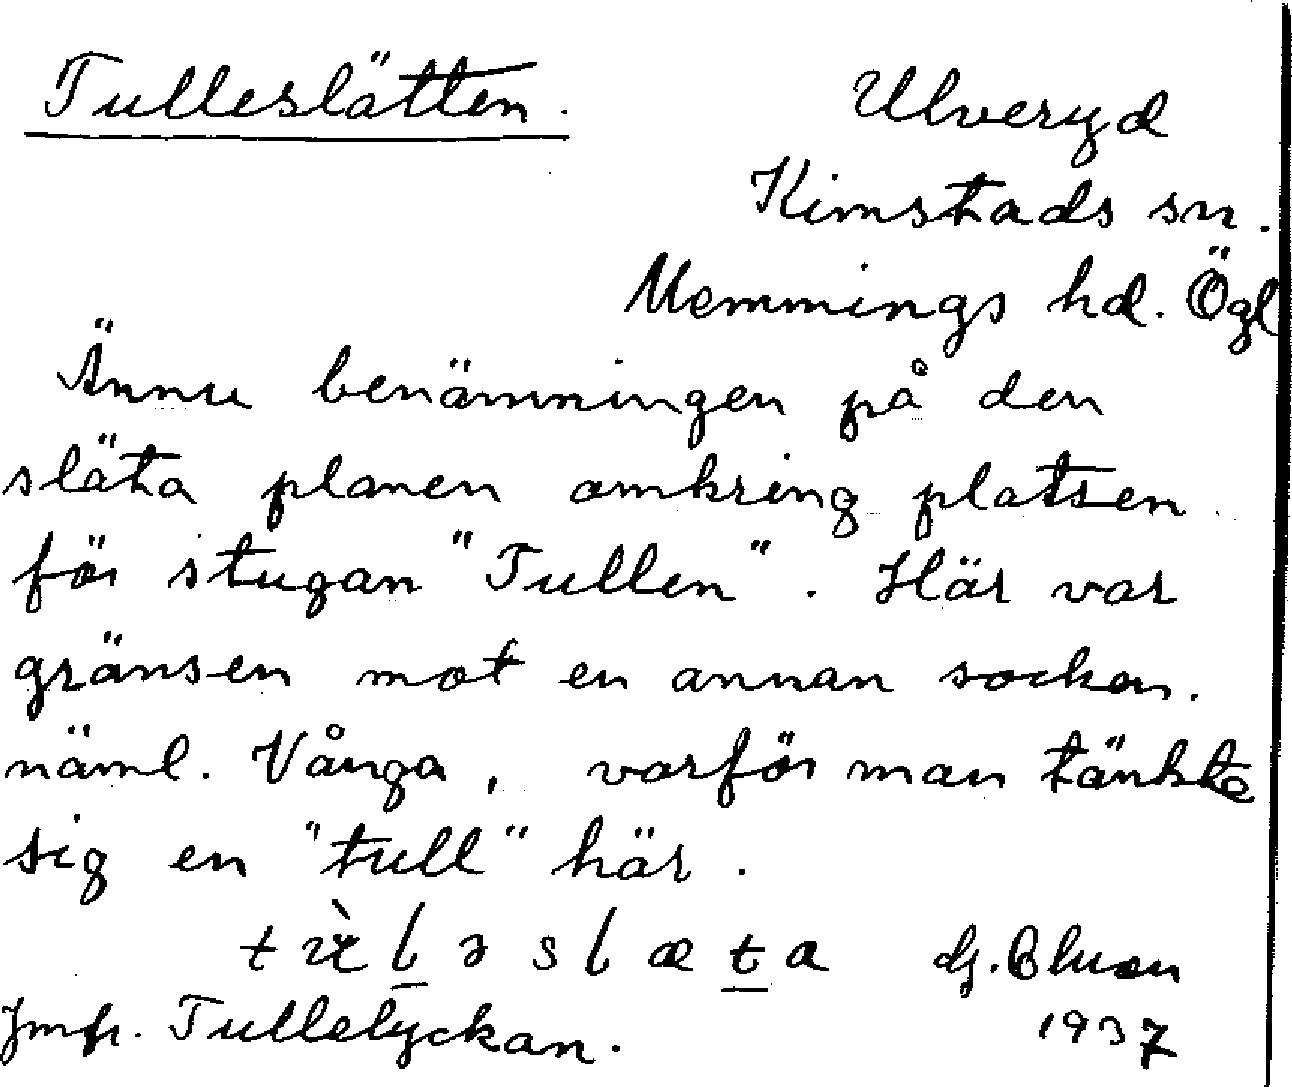 Tulleslätten.
Ulveryd
Kimstads sn.
Memmings hd. Ögl
Ännu benämningen på den
släta planen omkring platsen
för stugan "Tullen". Här var
gränsen mot en annan socken.
näml. Vånga, varför man tänkte
sig en "tull" här.
1937
Jmfr. Tullelyckan.